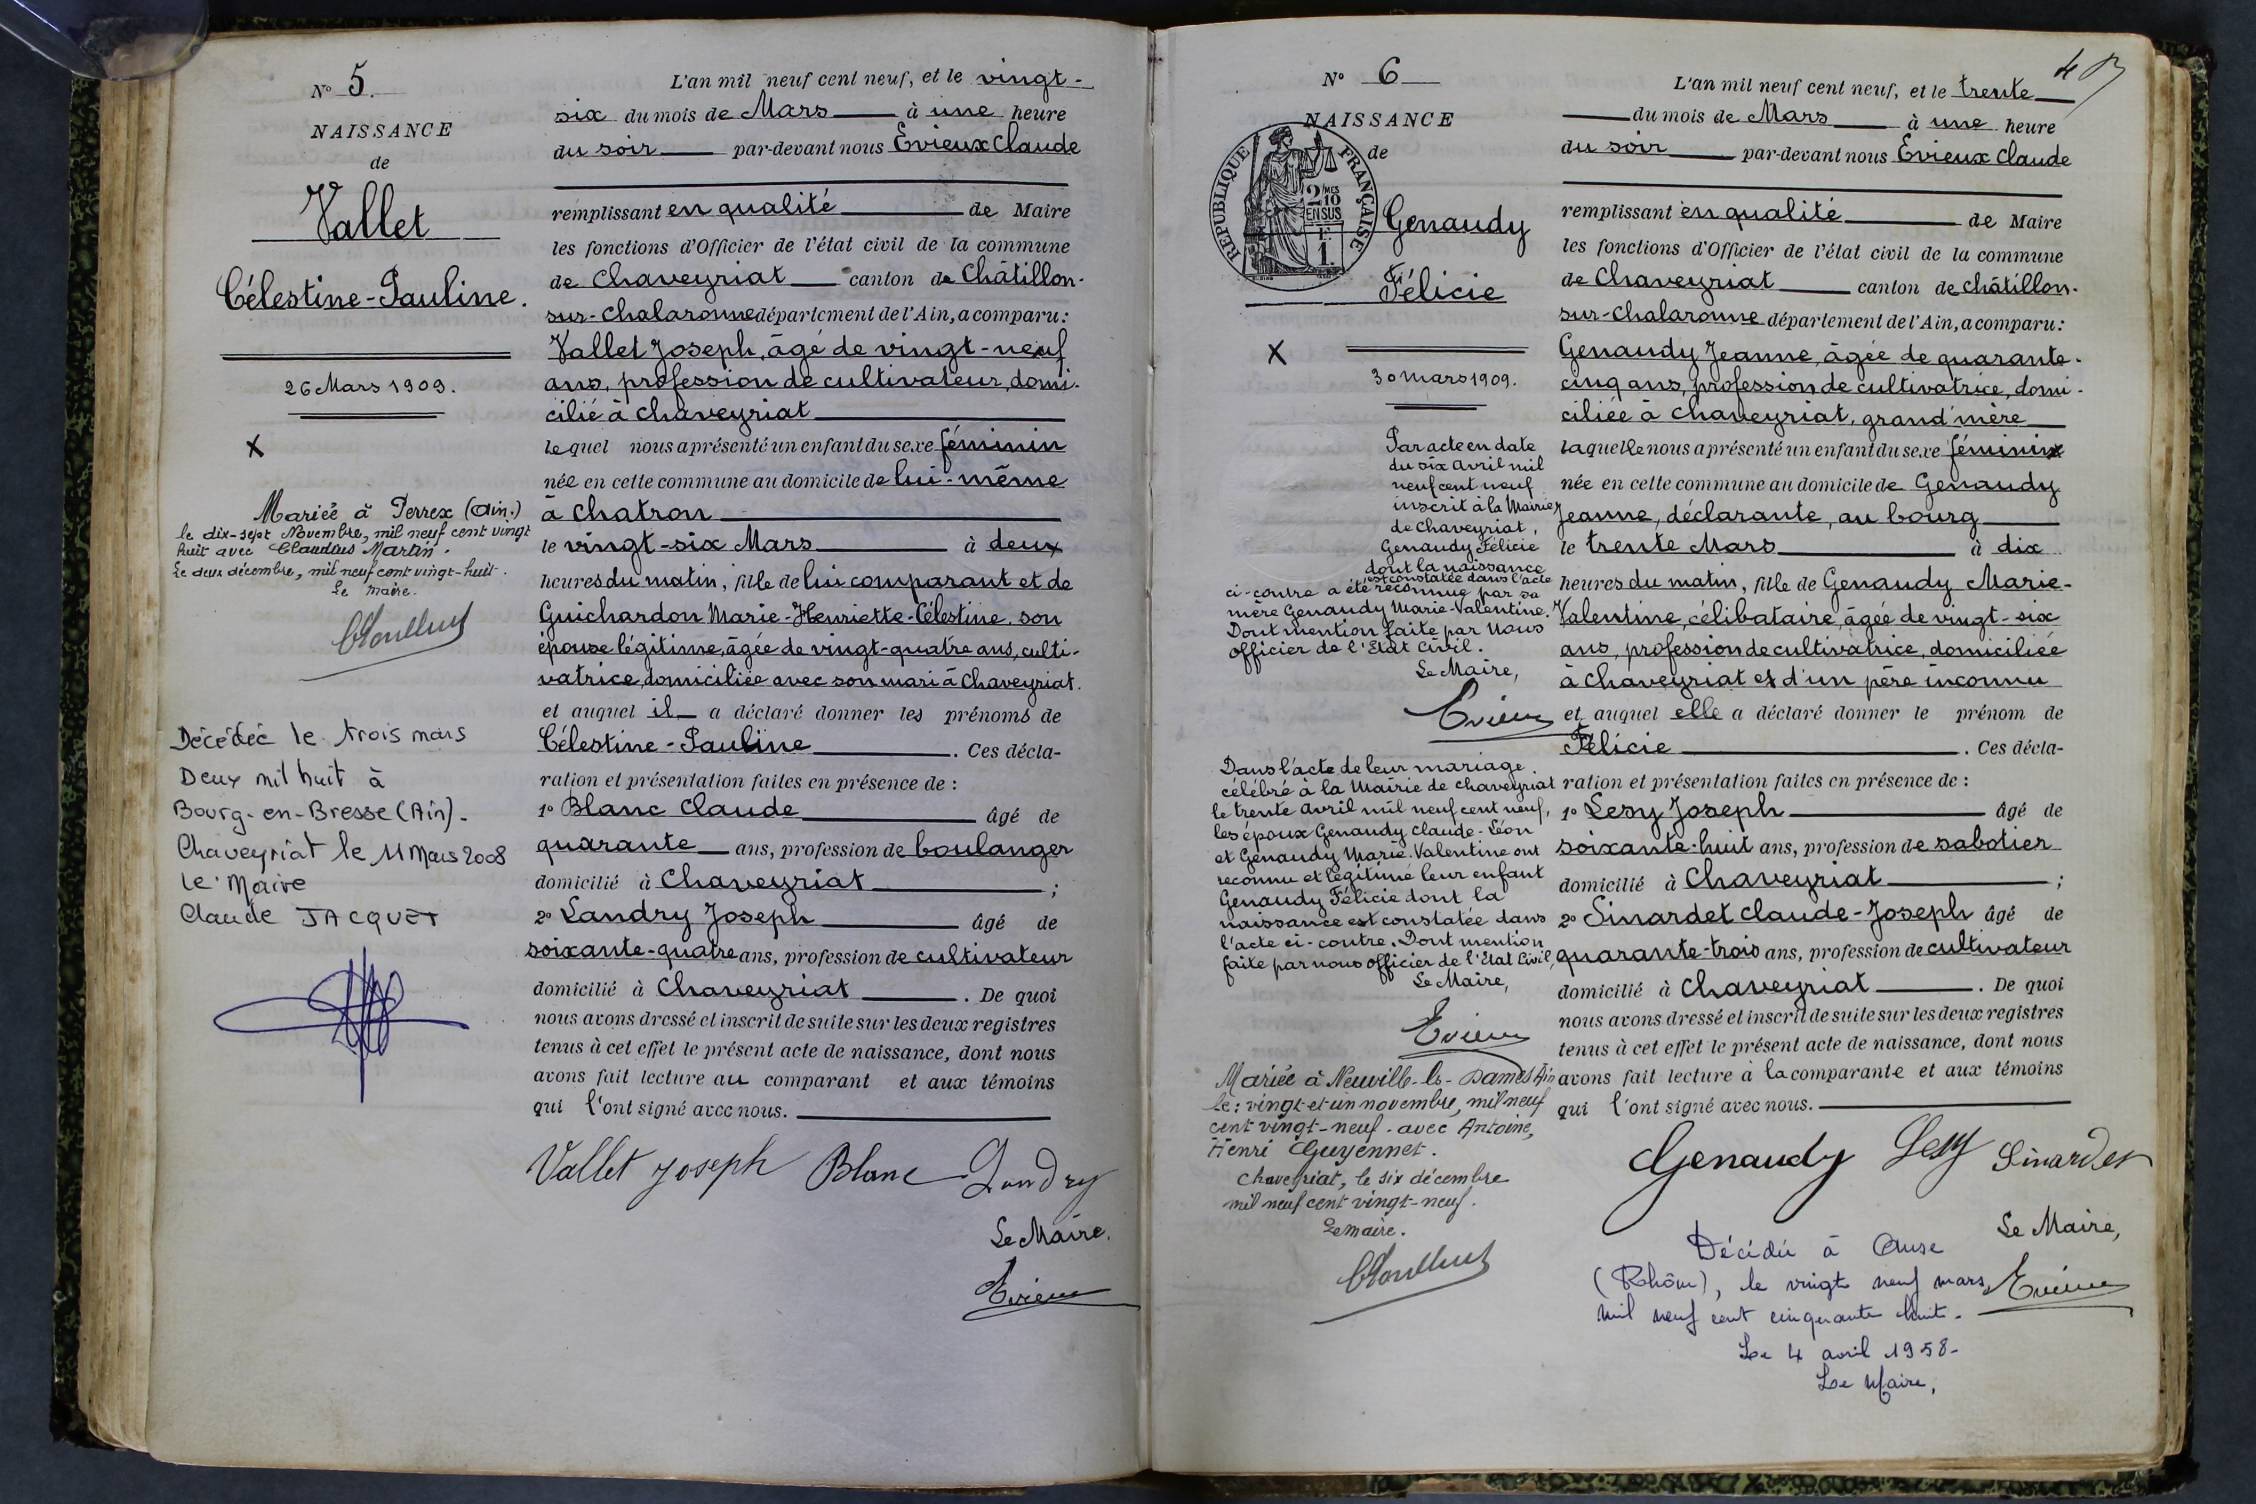 N° 5.
NAISSANCE
de
Vallet
Célestine-Pauline.
26 Mars 1909.
X
Mariée à Perrex (Ain.)
le dix-sept Novembre, mil neuf cent vingt
huit avec Claudius Martin.
Le deux décembre, mil neuf cent vingt-huit.
Le maire.
Décédée le trois mars
Deux mil huit à
Bourg-en-Bresse (Ain)-
Chaveyriat le 11 Mars 2008
le Maire
Claude JACQUET
L'an mil neuf cent neuf, et le vingt-
six du mois de Mars à une heure
du soir par-devant nous Evieux Claude
remplissant en qualité de Maire
les fonctions d'Officier de l'état civil de la commune
de Chaveyriat canton de Châtillon-
sur-Chalaronne département de l'Ain, a comparu:
Vallet Joseph, âgé de vingt-neuf
ans, profession de cultivateur, domi-
cilié à Chaveyriat
lequel nous a présenté un enfant du sexe féminin
née en cette commune au domicile de lui-même
à Chatron
le vingt-six Mars à deux
heures du matin, fille de lui comparant et de
Guichardon Marie-Henriette-Célestine, son
épouse légitime, âgée de vingt-quatre ans, culti-
vatrice, domiciliée avec son mari à Chaveyriat.
et auquel il a déclaré donner les prénoms de
Célestine-Pauline. Ces décla-
ration et présentation faites en présence de :
1° Blanc Claude âgé de
quarante ans, profession de boulanger
domicilié à Chaveyriat ;
2° Landry Joseph âgé de
soixante-quatre ans, profession de cultivateur
domicilié à Chaveyriat . De quoi
nous avons dressé et inscrit de suite sur les deux registres
tenus à cet effet le présent acte de naissance, dont nous
avons fait lecture au comparant et aux témoins
qui l'ont signé avec nous.
Vallet Joseph Blanc Landry
Le Maire.
Evieux
N° 6
NAISSANCE
de
RÉPUBLIQUE FRANÇAISE
2/10 MES
EN SUS
1.
Genaudy
Félicie
X
30 mars 1909.
Par acte en date
du six avril mil
neuf cent neuf
inscrit à la Mairie
de Chaveyriat,
Genaudy Félicie
dont la naissance
est constatée dans l'acte
ci-contre a été reconnue par sa
mère Genaudy Marie-Valentine.
Dont mention faite par Nous
officier de l'Etat Civil.
Le Maire,
Evieux
Dans l'acte de leur mariage
célébré à la Mairie de Chaveyriat
le trente avril mil neuf cent neuf,
les époux Genaudy Claude-Léon
et Genaudy Marie-Valentine ont
reconnu et légitimé leur enfant
Genaudy Félicie dont la
naissance est constatée dans
l'acte ci-contre. Dont mention
faite par nous officier de l'Etat Civil,
Le Maire,
Evieux
Mariée à Neuville-les-Dames Ain
le : vingt et un novembre, mil neuf
cent vingt-neuf. avec Antoine,
Henri Guyennet.
Chaveyriat, le six décembre
mil neuf cent vingt-neuf.
Le maire.
L'an mil neuf cent neuf, et le trente
du mois de Mars à une heure
du soir par-devant nous Evieux Claude
remplissant en qualité de Maire
les fonctions d'Officier de l'état civil de la commune
de Chaveyriat canton de Châtillon-
sur-Chalaronne département de l'Ain, a comparu:
Genaudy Jeanne, âgée de quarante-
cinq ans, profession de cultivatrice, domi-
ciliée à Chaveyriat, grand'mère
laquelle nous a présenté un enfant du sexe féminin
née en cette commune au domicile de Genaudy
Jeanne, déclarante, au bourg
le trente Mars à dix
heures du matin, fille de Genaudy Marie-
Valentine, célibataire, âgée de vingt-six
ans, profession de cultivatrice, domiciliée
à Chaveyriat et d'un père inconnu
et auquel elle a déclaré donner le prénom de
Félicie . Ces décla-
ration et présentation faites en présence de :
1° Lesy Joseph âgé de
soixante-huit ans, profession de sabotier
domicilié à Chaveyriat ;
2° Sinardet Claude-Joseph âgé de
quarante-trois ans, profession de cultivateur
domicilié à Chaveyriat . De quoi
nous avons dressé et inscrit de suite sur les deux registres
tenus à cet effet le présent acte de naissance, dont nous
avons fait lecture à la comparante et aux témoins
qui l'ont signé avec nous.
Genaudy Lesy Sinardet
Le Maire,
Evieux
Décédée à Anse
(Rhône), le vingt neuf mars
mil neuf cent cinquante huit.
Le 4 avril 1958-
Le Maire,